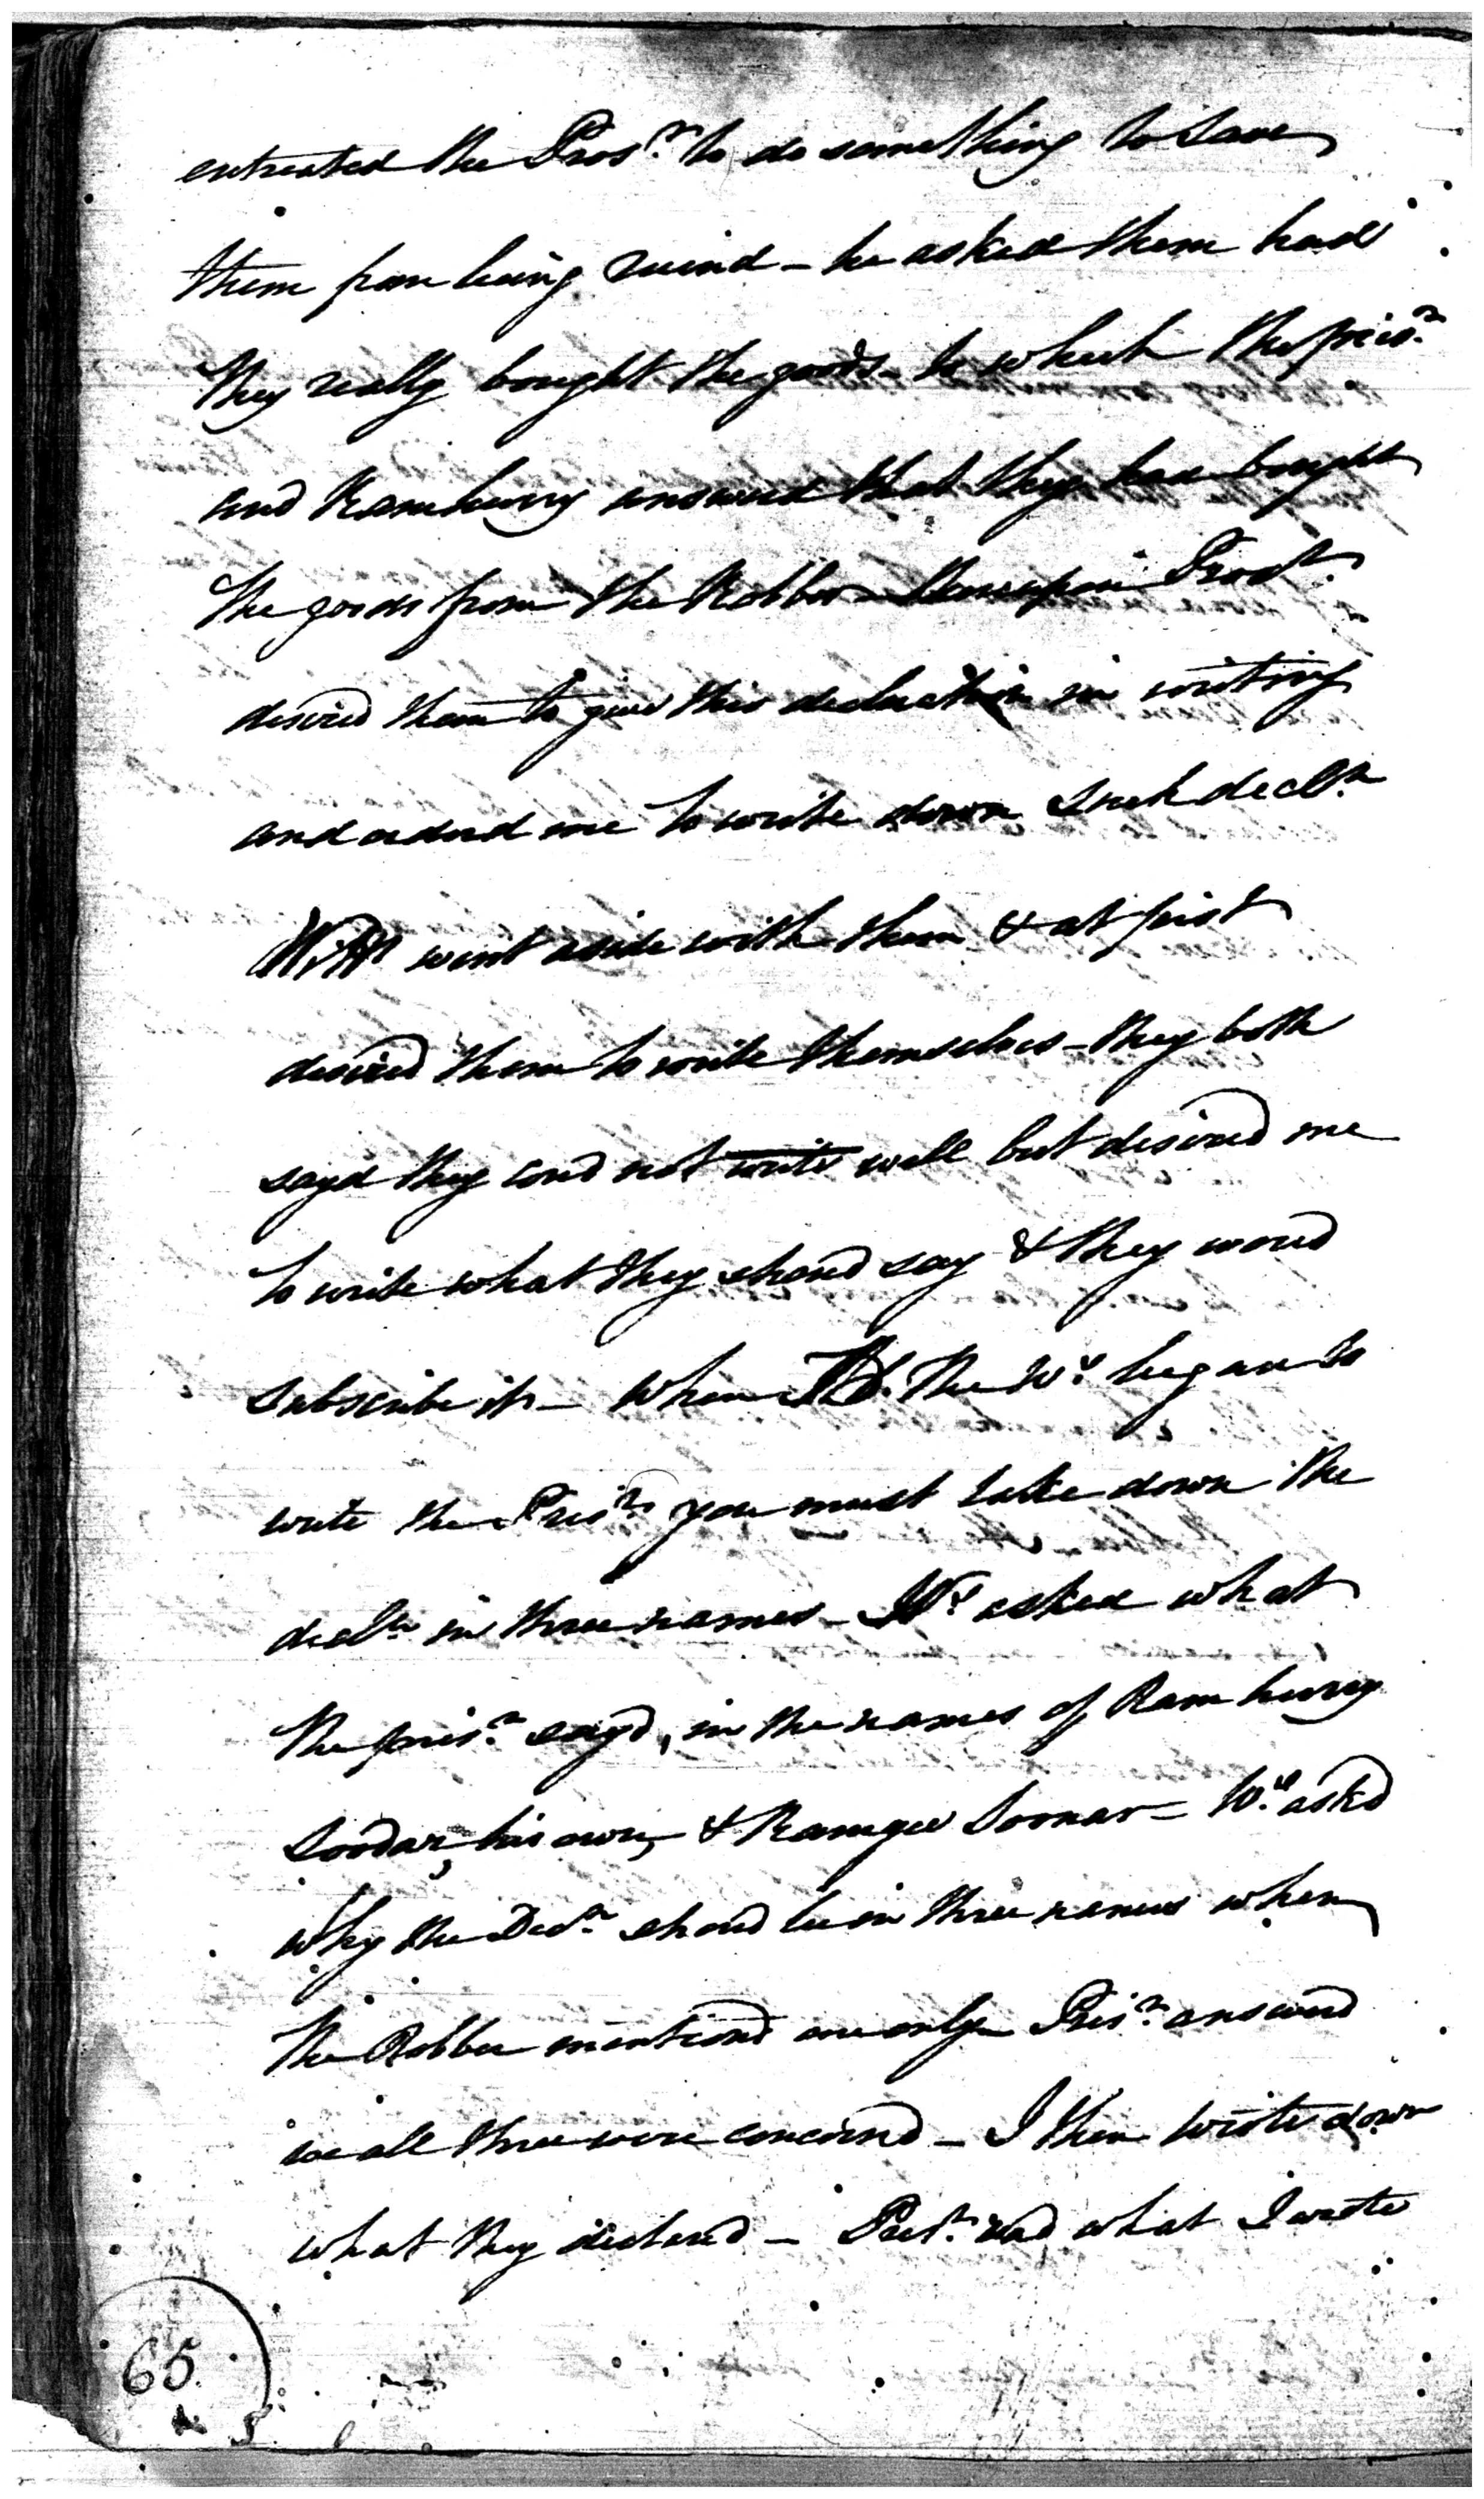 entreated the Pros.r to do something to save
them from being ruind - he asked them had
they really bought the goods - to which the pris.r
and Ramhurry answered that they had bought
the goods from the Robber - Thereupon Pros.r
desired them to give this declaration in writing
and orderd me to write down such decl.n
Witss went aside with them & at first
desired them to write themselves - they both
sayd they coud not write well but desired me
to write what they shoud say & they woud
subscribe it - When the W.s began to
write the Pris.r you must take down the
decl.n in three names - W.s asked what
the pris.r sayd, in the names of Ram hurry
Soodar, his own, & Ramgee Soonar - W.s askd
why the Decn shoud be in three names when
the Robber mentiond one only Pris.r answerd
we all three were concernd - I then wrote down
what they declard - Pris.r read what I wrote
65